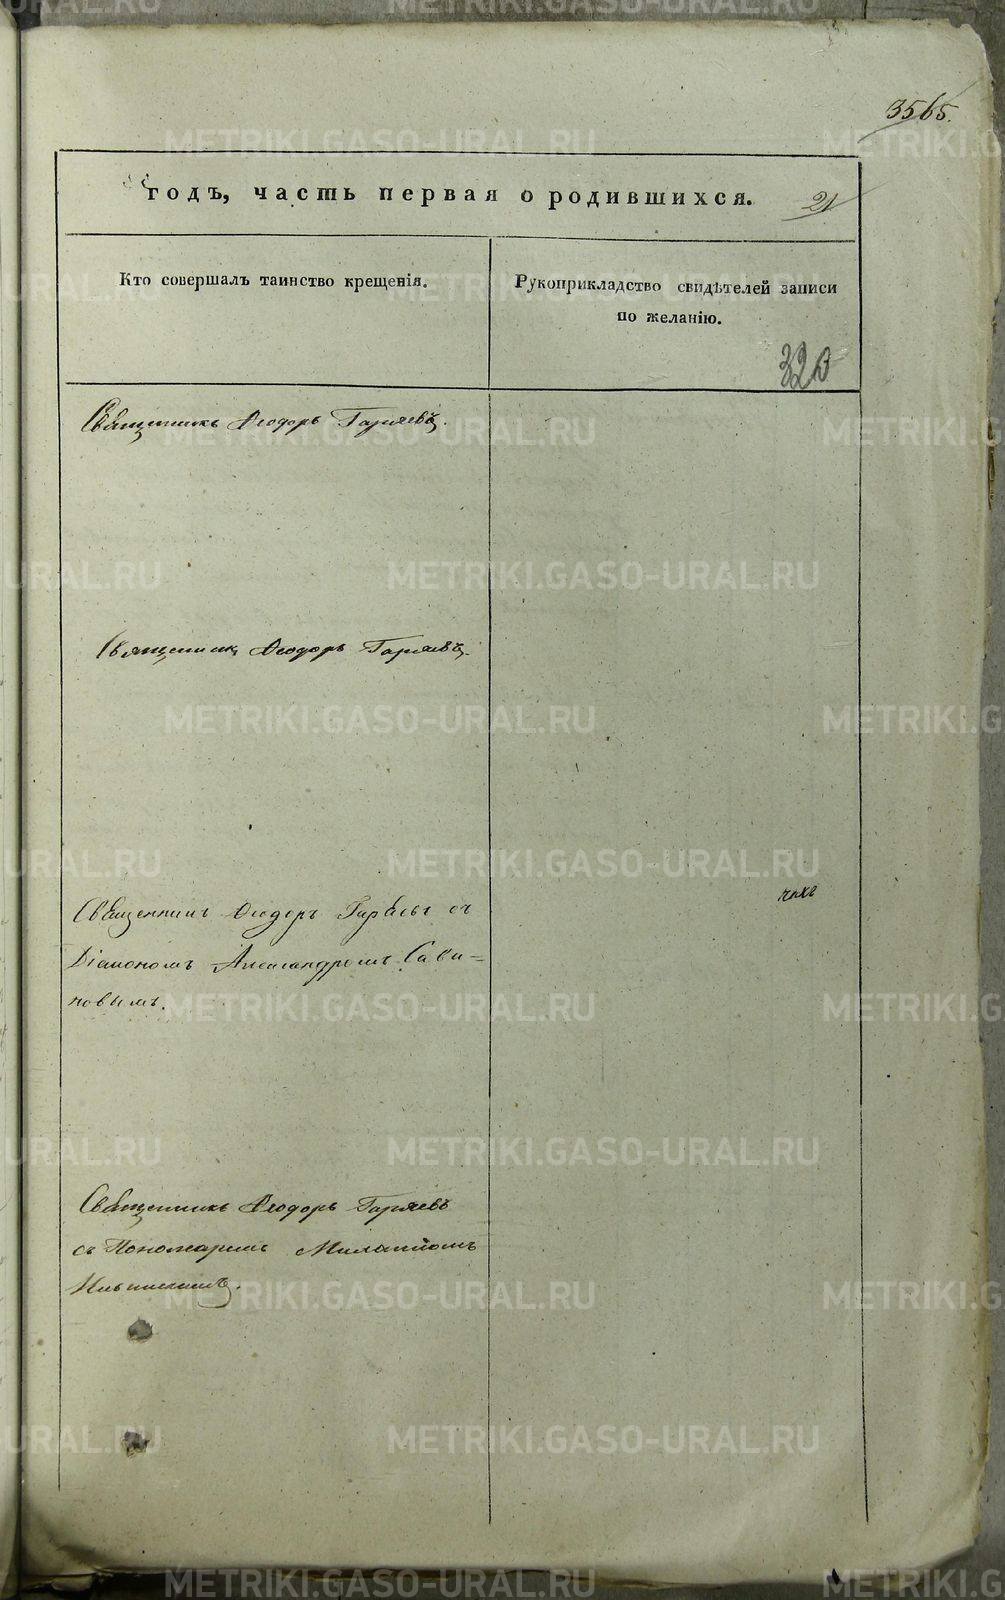 3565.
годъ, часть первая о родившихся. 21
Кто совершалъ таинство крещенія.
Рукоприкладство свидѣтелей записи
по желанію.
320
Священникъ Ѳеодоръ Гаряевъ.
Священникъ Ѳеодоръ Гаряевъ.
Священникъ Ѳеодоръ Гаряевъ съ
Діакономъ Александромъ Сави-
новымъ.
Священникъ Ѳеодоръ Гаряевъ
съ Пономаремъ
METRIKI.GASO-URAL.RU